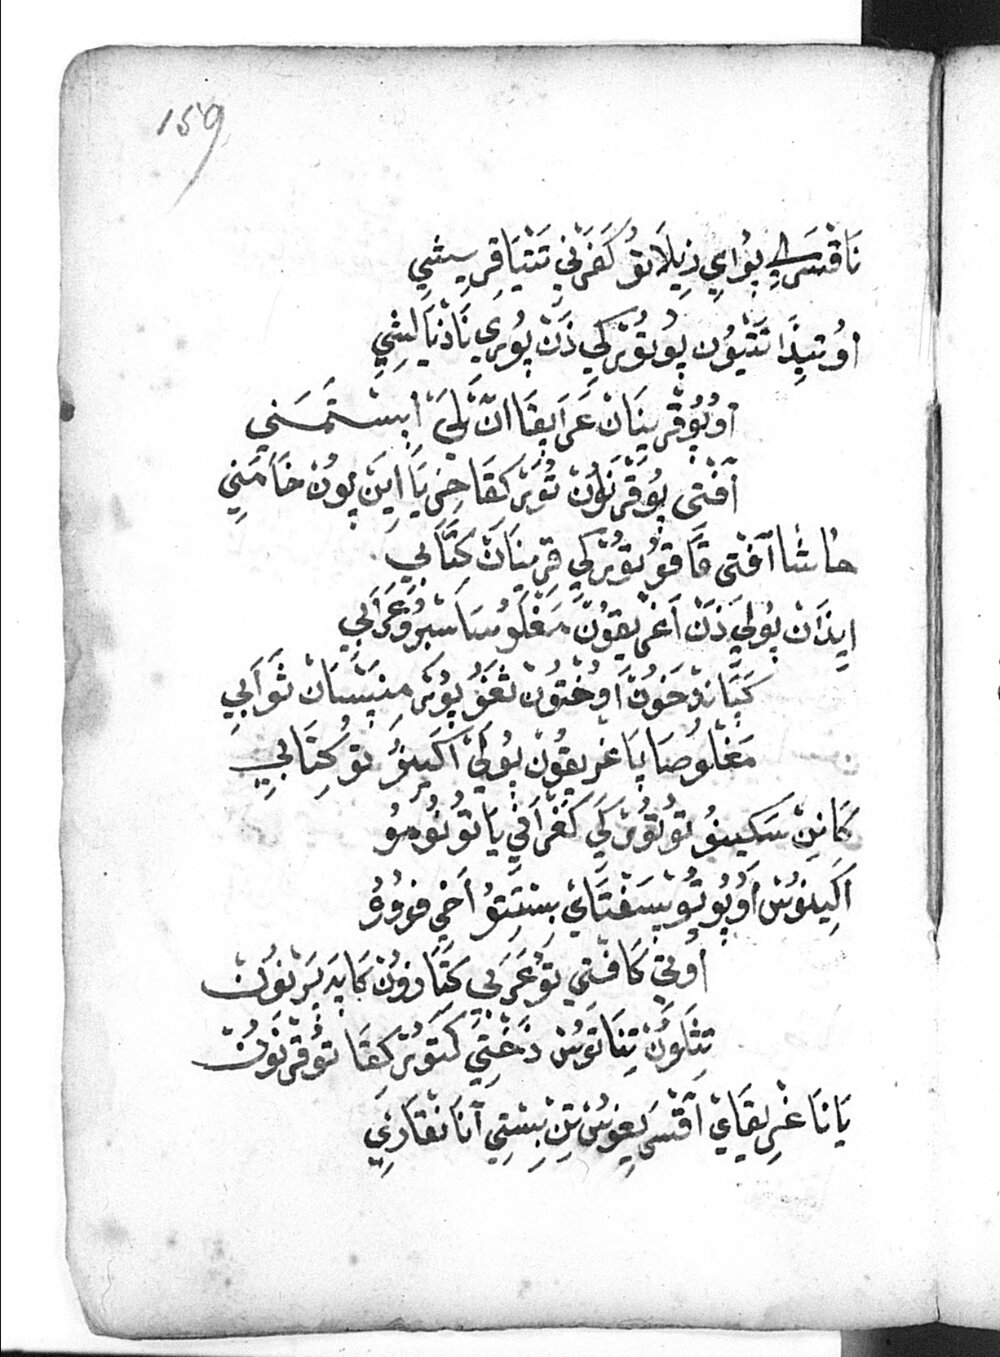 159
نَاقْسَرِلِي بُوْاىِ ذِيلَاتُو كَفَرْنِي تَتْيَاقِرِيسِتِي
اوُتِيذَا تَتْيُون بُوتُوْركِي ذَنْ بُورِي نَاذْيَالِيثِي
اوُبُوقْرِينَانْ عَرَابِقَا انّ بَلِىَ ابِسْتَمَنِي
آفْتِى بُوقْرَنَوُنْ تُوْركِقَا خِرِيَا اِينَ بُونْ خَامَنِي
حاشا آفْتِى قَاقُو تُوْركِي قِرِينَانْ كَتَابِي
اِيذَانْ بُولِي ذَنْ اَغْرِيقُونْ مَغْلُوسَا سَبْرُوُعَرَابِي
كَبَانْدَخَوُنْ اوُخْتُونْ ثَغَوُ بُوكْرَ مِنِيَسَانْ ثَوَابِي
مَغْلُوصَابَا غْرِيقُونْ بُولِيْ اَكَينُو تُوكِتَابِي
كَانِنْ سَكِينُو تُوتُوْركِي كَفَرَافِي يَا تُوتُومُو
اَكِينُوسْ اوُبُوتُو بِسَفْتَائِ بِسْتِتُو اَخِي فُورُو
اوُتِي كَافْتِي تُوعَرَبِي كَتَازُونْ كَابَدِيَرْنَوُنْ
تِثَلَوُنْ تِنَاتُوسْ دَخْتِي كَتُوْركِقَا تُوقْرَنَوُنْ
يَانَا غْرِيقَايْ آفْسَرِيغُوسْ تِنْ بِسْتِي آنَانْقَارِي